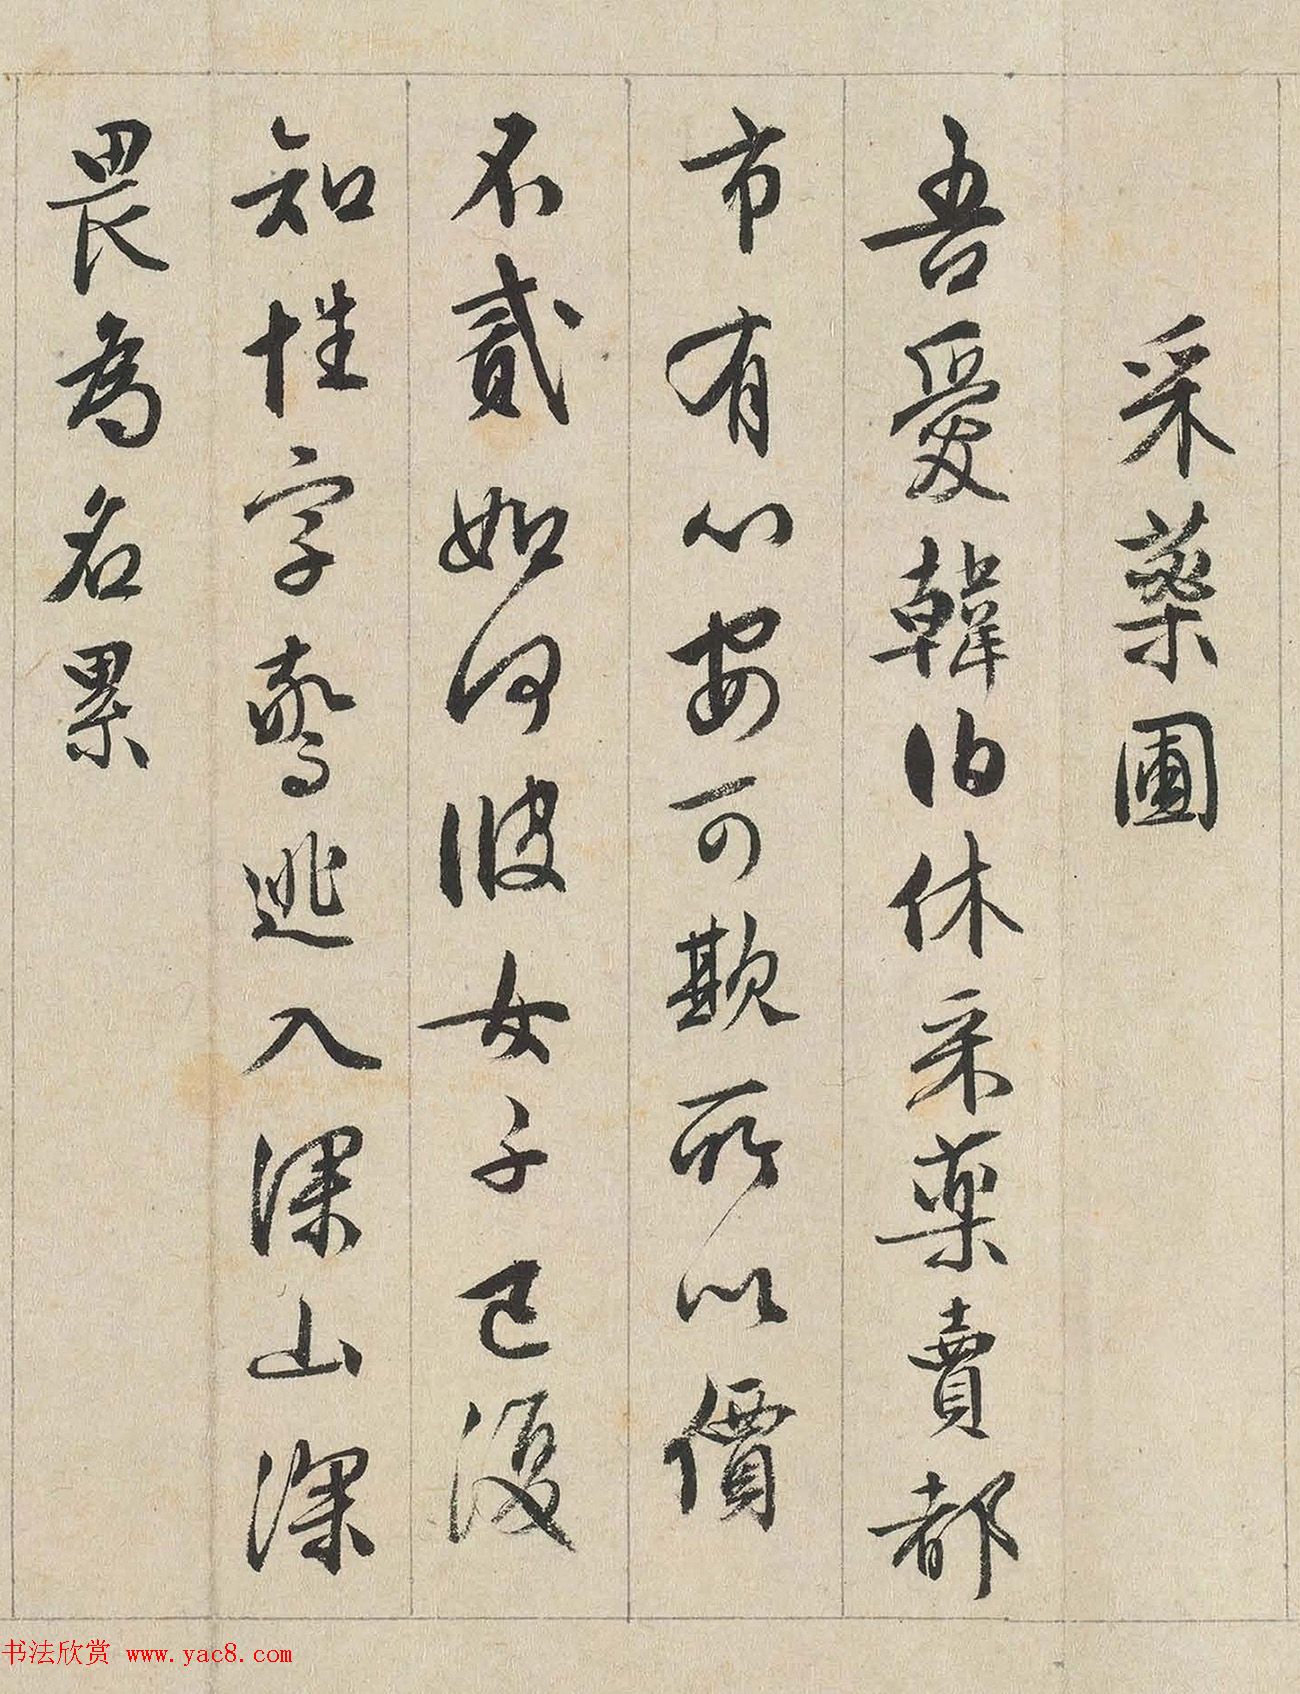 采藥圃
吾愛韓伯休采藥賣都
市有心安可欺所以價
不貳如何彼女子已復
知姓字驚逃入深山深
畏為名累
书法欣赏 www.yac8.com